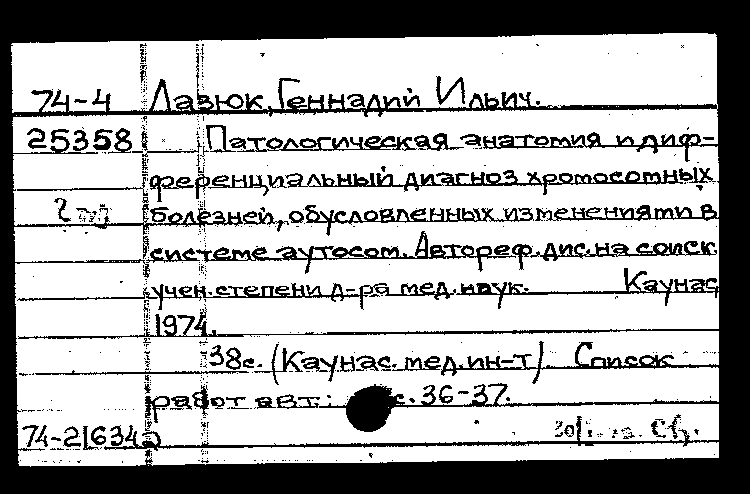 74-4 Лазюк, Геннадий Ильич.
25358 Патологическая анатомия и диф-
ференциальный диагноз хромосомных
болезней, обусловленных изменениями в
системе аутосом. Автореф. дис. на соиск.
учен. степени д-ра мед. наук. Каунас
1974.
38с. (Каунас. мед. ин-т). Список
работ авт.: с. 36-37.
74-21634а